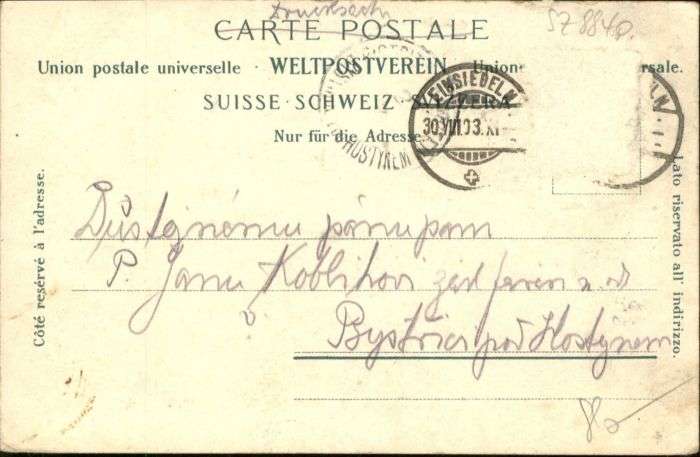 Drucksache
CARTE POSTALE
SZ 884
Union postale universelle · WELTPOSTVEREIN · Unione rsale.
SUISSE · SCHWEIZ · SVIZZERA
Nur für die Adresse.
EINSIEDELN
30.VIII.03.XI
HOSTÝNEM
LN
Côté reservé à l'adresse.
Lato riservato all' indirizzo.
Důstojnému pánu pan
P. Janu Koblihovi
Bystřici pod Hostýnem